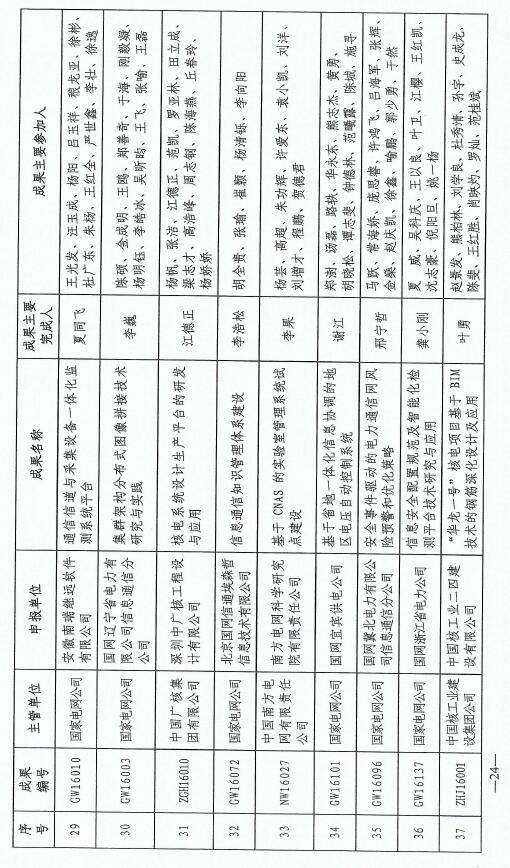 序号 成果编号 主管单位 申报单位 成果名称 成果主要完成人 成果主要参加人
29 GW16010 国家电网公司 安徽南瑞继远软件有限公司 通信信道与采集设备一体化监测系统平台 夏同飞 王光发、汪玉成、杨阳、吕玉祥、穆龙亚、徐彬、杜广东、朱杨、王红全、严世鑫、李壮、徐逸
30 GW16003 国家电网公司 国网辽宁省电力有限公司信息通信分公司 集群架构分布式图像拼接技术研究与实践 李巍 陈硕、金成明、王鸥、郑善奇、于海、刚毅凝、杨明钰、李皓冰、吴昕昀、王飞、张喻、王磊
31 ZGH16010 中国广核集团有限公司 深圳中广核工程设计有限公司 核电系统设计生产平台的研发与应用 江德正 杨帆、张洁、江德正、范凯、罗亚林、田立成、梁志才、高浩峰、周志钢、陈海燕、丘春玲、杨娇娇
32 GW16072 国家电网公司 北京国网信通埃森哲信息技术有限公司 信息通信知识管理体系建设 李浩松 胡全贵、张瑜、崔颖、杨清铄、李向阳
33 NW16027 中国南方电网有限责任公司 南方电网科学研究院有限责任公司 基于 CNAS 的实验室管理系统试点建设 李果 杨芸、高超、朱功辉、许爱东、袁小凯、刘洋、刘增才、程鹏、贺德君
34 GW16101 国家电网公司 国网宜宾供电公司 基于省地一体化信息协调的地区电压自动控制系统 谢江 郑澍、汤磊、路轶、华永东、熊志杰、黄勇、胡晓松、谭志斐、钟德林、范曦露、陈城、施寻
35 GW16096 国家电网公司 国网冀北电力有限公司信息通信分公司 安全事件驱动的电力通信网风险预警和优化策略 邢宁哲 马跃、常海娇、庞思睿、许鸿飞、吕海军、张辉、金燊、赵庆凯、徐鑫、喻鹏、郭少勇、于然
36 GW16137 国家电网公司 国网浙江省电力公司 信息安全配置规范及智能化检测平台技术研究与应用 龚小刚 夏威、吴科庆、王以良、叶卫、江樱、王红凯、沈志豪、倪阳旦、姚一杨
37 ZHJ16001 中国核工业建设集团公司 中国核工业二四建设有限公司 “华龙一号”核电项目基于 BIM 技术的钢筋深化设计及应用 叶勇 赵景发、熊柏林、刘学良、杜秀清、孙宇、史成龙、陈斐、王红胜、肖映灼、罗灿、范桂斌
—24—